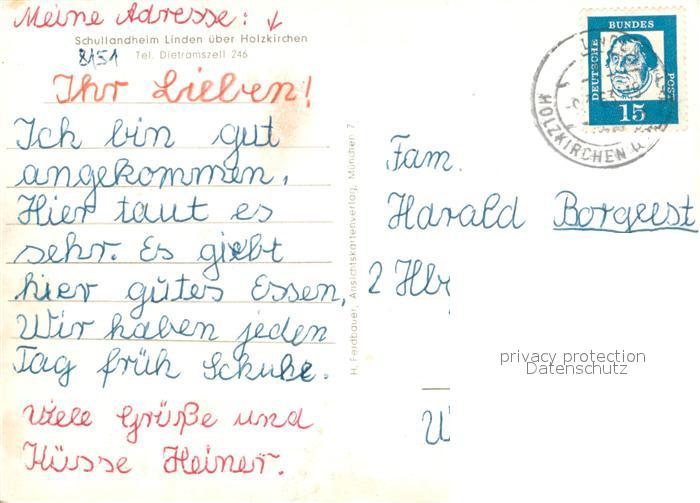 Meine Adresse: ↓
Schullandheim Linden über Holzkirchen
8151
Tel. Dietramszell 246
Ihr Lieben!
Ich bin gut
angekommen.
Hier taut es
sehr. Es giebt
hier gutes Essen,
Wir haben jeden
Tag früh Schule.
Viele Grüße und
Küsse Heiner.
H. Ferdbauer, Ansichtskartenverlag, München 7
DEUTSCHE BUNDES POST
15
HOLZKIRCHEN
Fam.
Harald Borgeest
2 Hb
privacy protection
Datenschutz